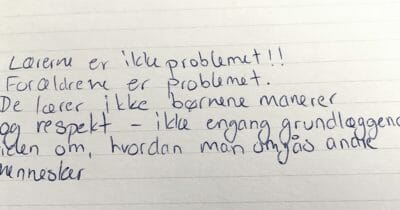 Lærerne er ikke problemet!!
Forældrene er problemet.
De lærer ikke børnene manerer
og respekt - ikke engang grundlæggend
iden om, hvordan man omgås andre
mennesker